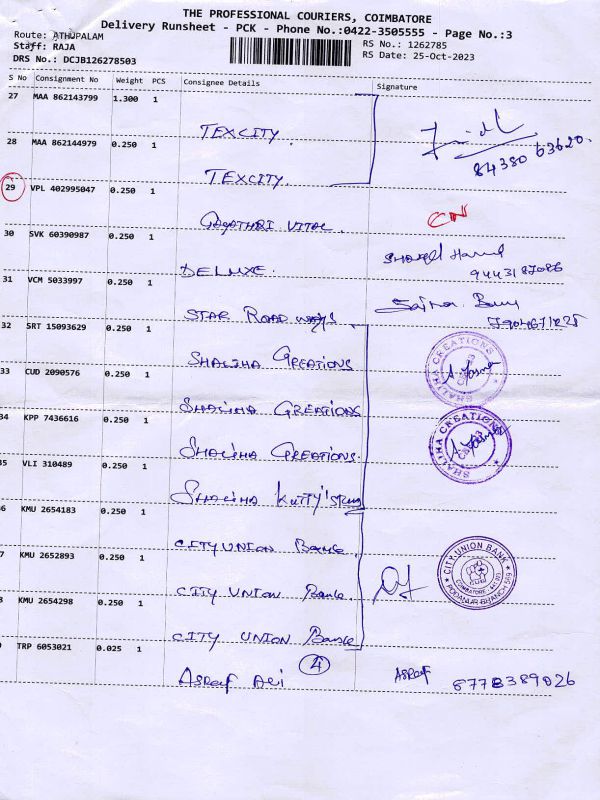 THE PROFESSIONAL COURIERS, COIMBATORE
Delivery Runsheet - PCK - Phone No.:0422-3505555 - Page No.:3
Route: ATHUPALAM
RS No.: 1262785
Staff: RAJA
RS Date: 25-Oct-2023
DRS No.: DCJB126278503
S No Consignment No Weight PCS Consignee Details Signature
27 MAA 862143799 1.300 1
TEXCITY.
28 MAA 862144979 0.250 1
84380 63620.
TEXCITY.
29 VPL 402995047 0.250 1
CN
GAYATHRI VITAL.
30 SVK 60390987 0.250 1
DELUXE.
9443187086
31 VCM 5033997 0.250 1
STAR ROAD WAYS.
32 SRT 15093629 0.250 1
SHALIHA CREATIONS
SHALIHA CREATIONS
33 CUD 2090576 0.250 1
SHALIHA CREATIONS
34 KPP 7436616 0.250 1
SHALIHA CREATIONS.
SHALIHA CREATIONS
35 VLI 310489 0.250 1
SHALIHA KUTTY'S
6 KMU 2654183 0.250 1
CITY UNION Bank.
7 KMU 2652893 0.250 1
CITY UNION Bank
CITY UNION BANK
COIMBATORE
PODANUR BRANCH
8 KMU 2654298 0.250 1
CITY UNION Bank
9 TRP 6053021 0.025 1
4
ASRAF ALI
ASRAF 8778389026